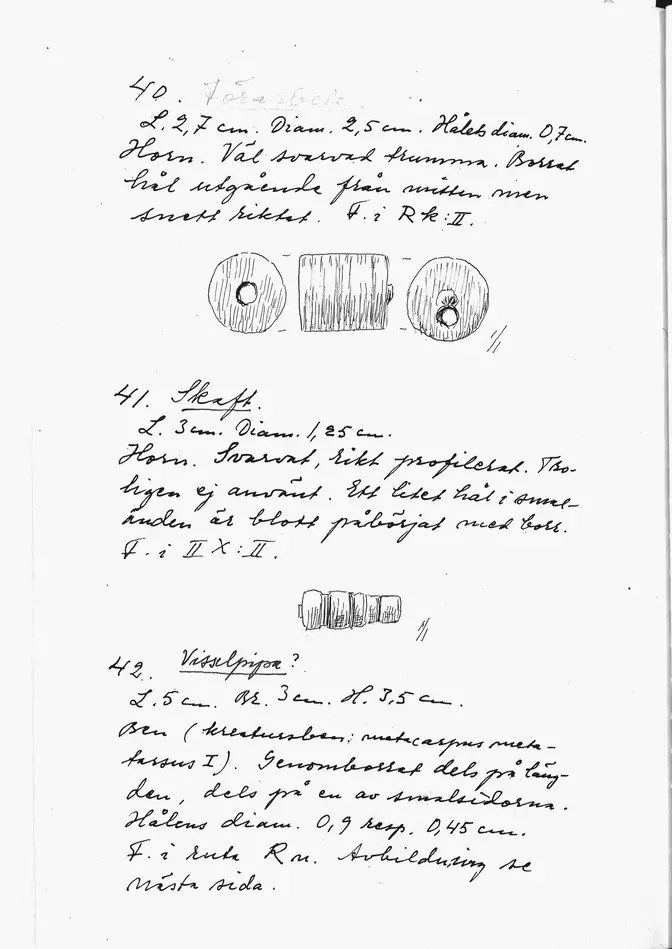 40. Förarbete.
L. 2,7 cm. Diam. 2,5 cm. Hålets diam. 0,7 cm.
Horn. Väl svarvad trumma. Borrat
hål utgående från mitten men
snett riktat. F. i Rk:II.
1/1
41. Skaft.
L. 3 cm. Diam. 1,25 cm.
Horn. Svarvat, rikt profilerat. Tro-
ligen ej använt. Ett litet hål i smal-
änden är blott påbörjat med borr.
F. i II X:II.
1/1
42. Visselpipa?
L. 5 cm. Br. 3 cm. H. 3,5 cm.
Ben (kreatursben: metacarpus meta-
tarsus I). Genomborrat dels på läng-
den, dels på en av smalsidorna.
Hålens diam. 0,9 resp. 0,45 cm.
F. i ruta Ru. Avbildning se
nästa sida.